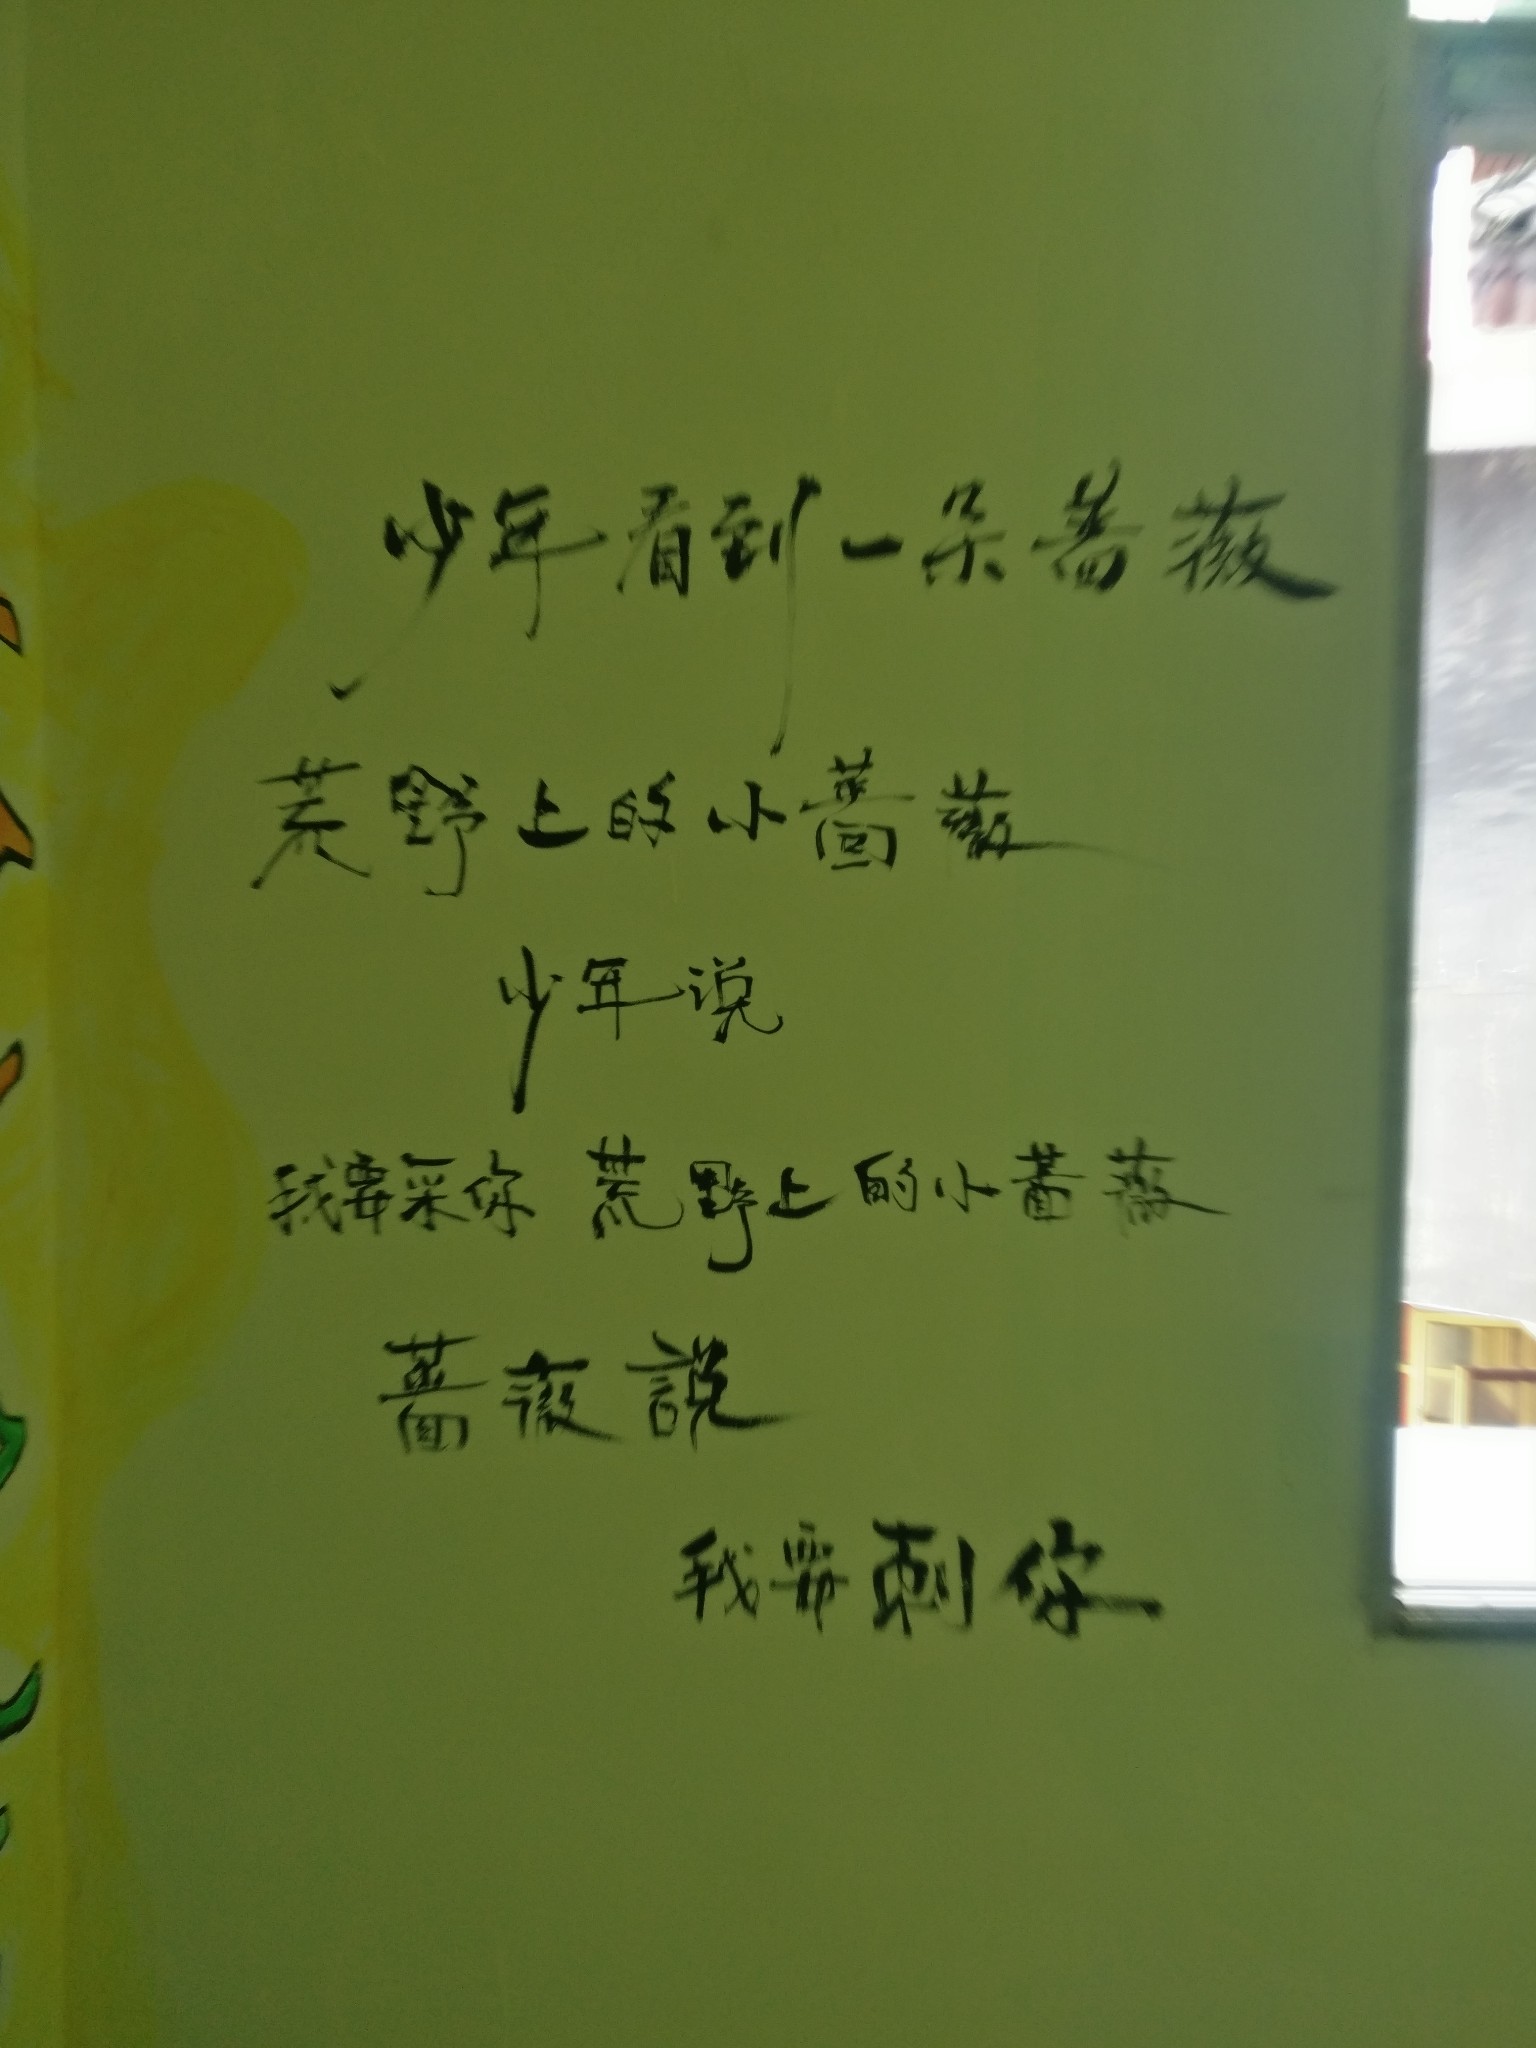 少年看到一朵蔷薇
荒野上的小蔷薇
少年说
我要采你 荒野上的小蔷薇
蔷薇說
我要刺你